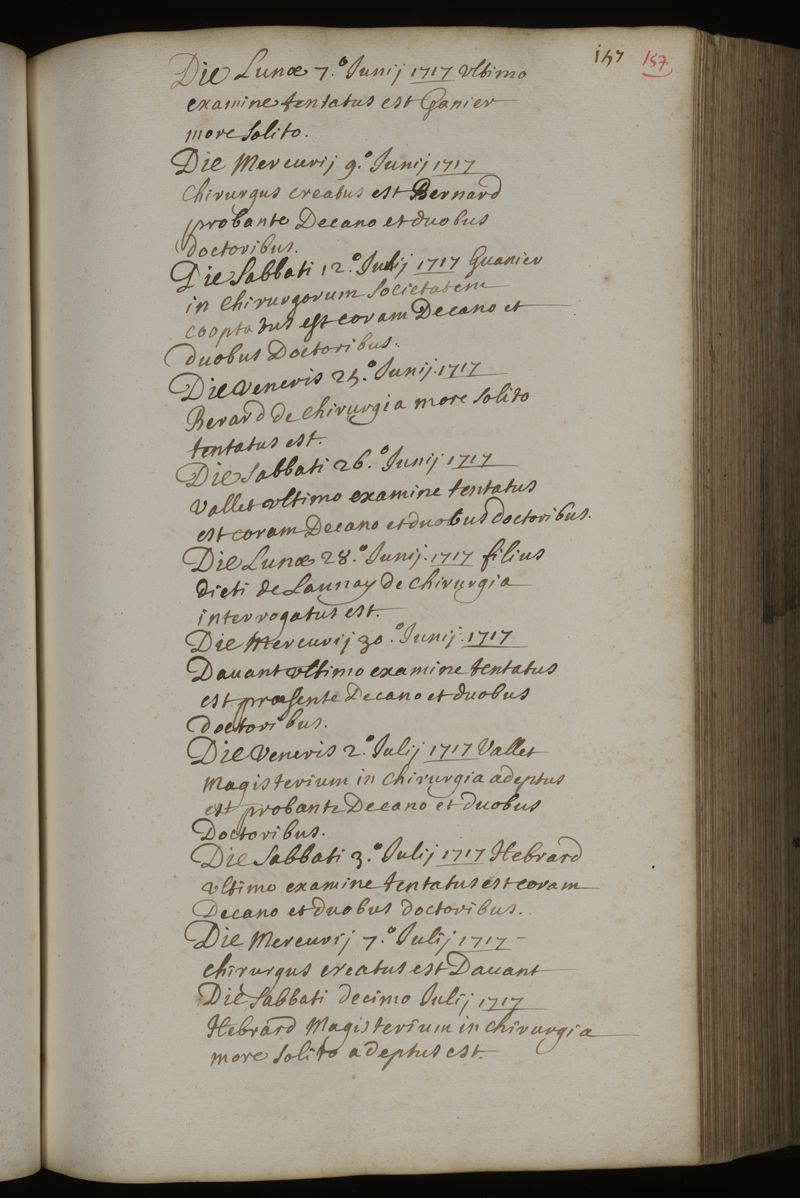 157 157
Die Lunæ 7.º Junij 1717 vltimo
examine tentatus est Ganier
more solito.
Die Mercurij 9.º Junij 1717
chirurgus creatus est Bernard
probante Decano et duobus
doctoribus.
Die Sabbati 12.º Junij 1717 Guanier
in chirurgorum societatem
cooptatus est coram Decano et
duobus Doctoribus.
Die Veneris 25.º Junij 1717
Berard de chirurgia more solito
tentatus est.
Die Sabbati 26.º Junij 1717
Vallet vltimo examine tentatus
est coram Decano et duobus doctoribus.
Die Lunæ 28.º Junij 1717 filius
dicti de Launay de chirurgia
interrogatus est.
Die Mercurij 30.º Junij 1717
Dauant vltimo examine tentatus
est præsente Decano et duobus
doctoribus.
Die Veneris 2.º Julij 1717 Vallet
Magisterium in chirurgia adeptus
est probante Decano et duobus
Doctoribus.
Die Sabbati 3.º Julij 1717 Hebrard
vltimo examine tentatus est coram
Decano et duobus doctoribus.
Die Mercurij 7.º Julij 1717 -
chirurgus creatus est Dauant
Die Sabbati decimo Julij 1717
Hebrard Magisterium in chirurgia
more solito adeptus est.